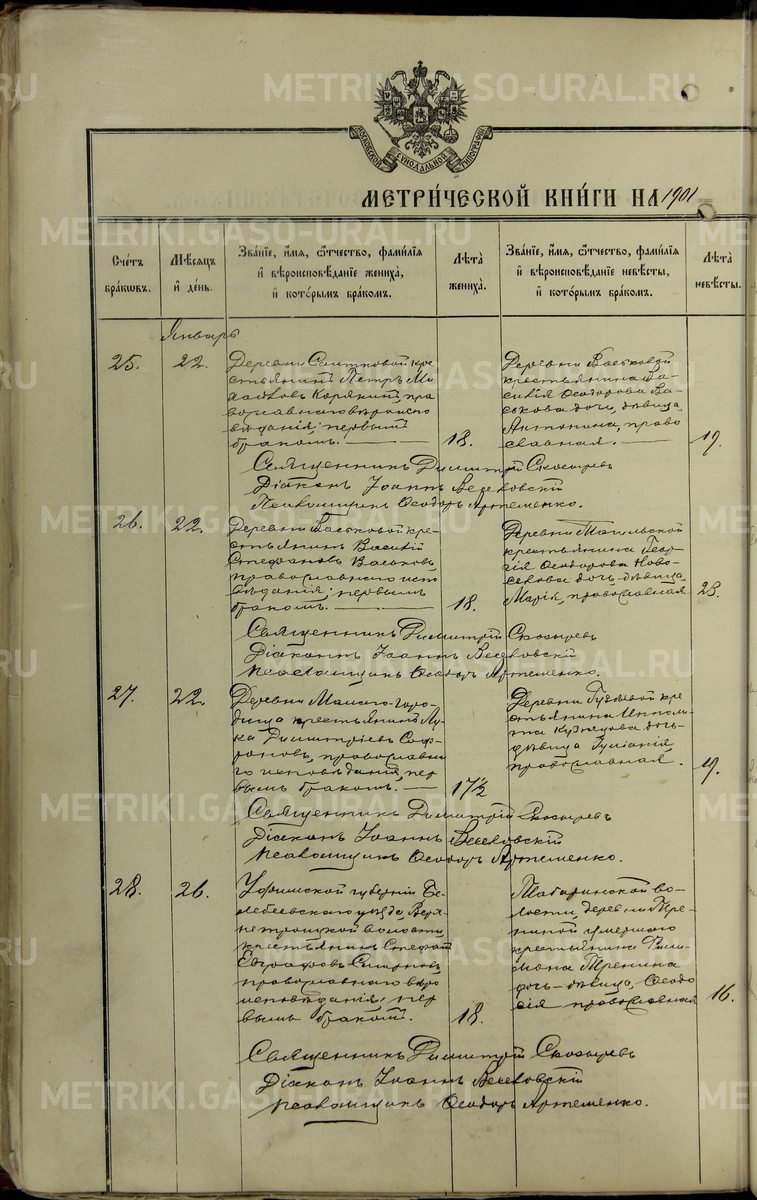 METRIKI.GASO-URAL.RU
МОСКОВСКОЙ СѴНОДАЛЬНОЙ ТИПОГРАФІИ
МЕТРИ́ЧЕСКОЙ КНИ́ГИ НА 1901
Сче́тъ бра́кѡвъ.
Мѣ́сѧцъ и҆ де́нь.
Зва́нїе, и҆́мѧ, ѻ҆́тчество, фами́лїѧ
и҆ вѣроисповѣ́данїе жениха̀,
и҆ кото́рымъ бра́комъ.
Лѣ́та жениха̀.
Зва́нїе, и҆́мѧ, ѻ҆́тчество, фами́лїѧ
и҆ вѣроисповѣ́данїе невѣ́сты,
и҆ кото́рымъ бра́комъ.
Лѣ́та невѣ́сты.
Январь
25. 22.
Деревни кре-
стьянинъ Петръ
Корякинъ, пра
вославнаго вѣроиспо
вѣданія; первымъ
бракомъ.
18.
Деревни Васьковой
крестьянина Ва-
силія Ѳеодорова Ва-
ськова дочь, дѣвица,
Антонина, право-
славная.
19.
Священникъ Димитрій Скосыревъ
Діаконъ Іоаннъ
Псаломщикъ Ѳеодоръ Артеменко.
26. 22.
Деревни Васьковой кре-
стьянинъ Василій
Стефановъ Васьковъ,
православнаго испо
вѣданія; первымъ
бракомъ.
18.
Деревни Тагильской
крестьянина Геор-
гія Ѳеодорова Ново-
селова дочь-дѣвица,
Марія, православная
23.
Священникъ Димитрій Скосыревъ
Діаконъ Іоаннъ
Псаломщикъ Ѳеодоръ Артеменко.
27. 22.
Деревни Малаго-Горо-
дища крестьянинъ Лу-
ка Димитріевъ Соф-
роновъ, православна
го исповѣданія, пер
вымъ бракомъ.
17½
Деревни кре-
стьянина Иппол-
та Кузнецова дочь-
дѣвица Іуліанія,
православная.
19.
Священникъ Димитрій Скосыревъ
Діаконъ Іоаннъ
Псаломщикъ Ѳеодоръ Артеменко.
28. 26.
Уфимской губерніи Бе-
лебеевскаго уѣзда, Верх-
нетроицкой волости,
крестьянинъ Стефанъ
Евграфовъ Смирновъ,
православнаго вѣро
исповѣданія, пер
вымъ бракомъ.
18.
Табаринской во-
лости, деревни Тре-
ниной умершаго
крестьянина Фили-
мона Тренина
дочь-дѣвица, Ѳеодо-
сія православная
16.
Священникъ Димитрій Скосыревъ
Діаконъ Іоаннъ
Псаломщикъ Ѳеодоръ Артеменко.